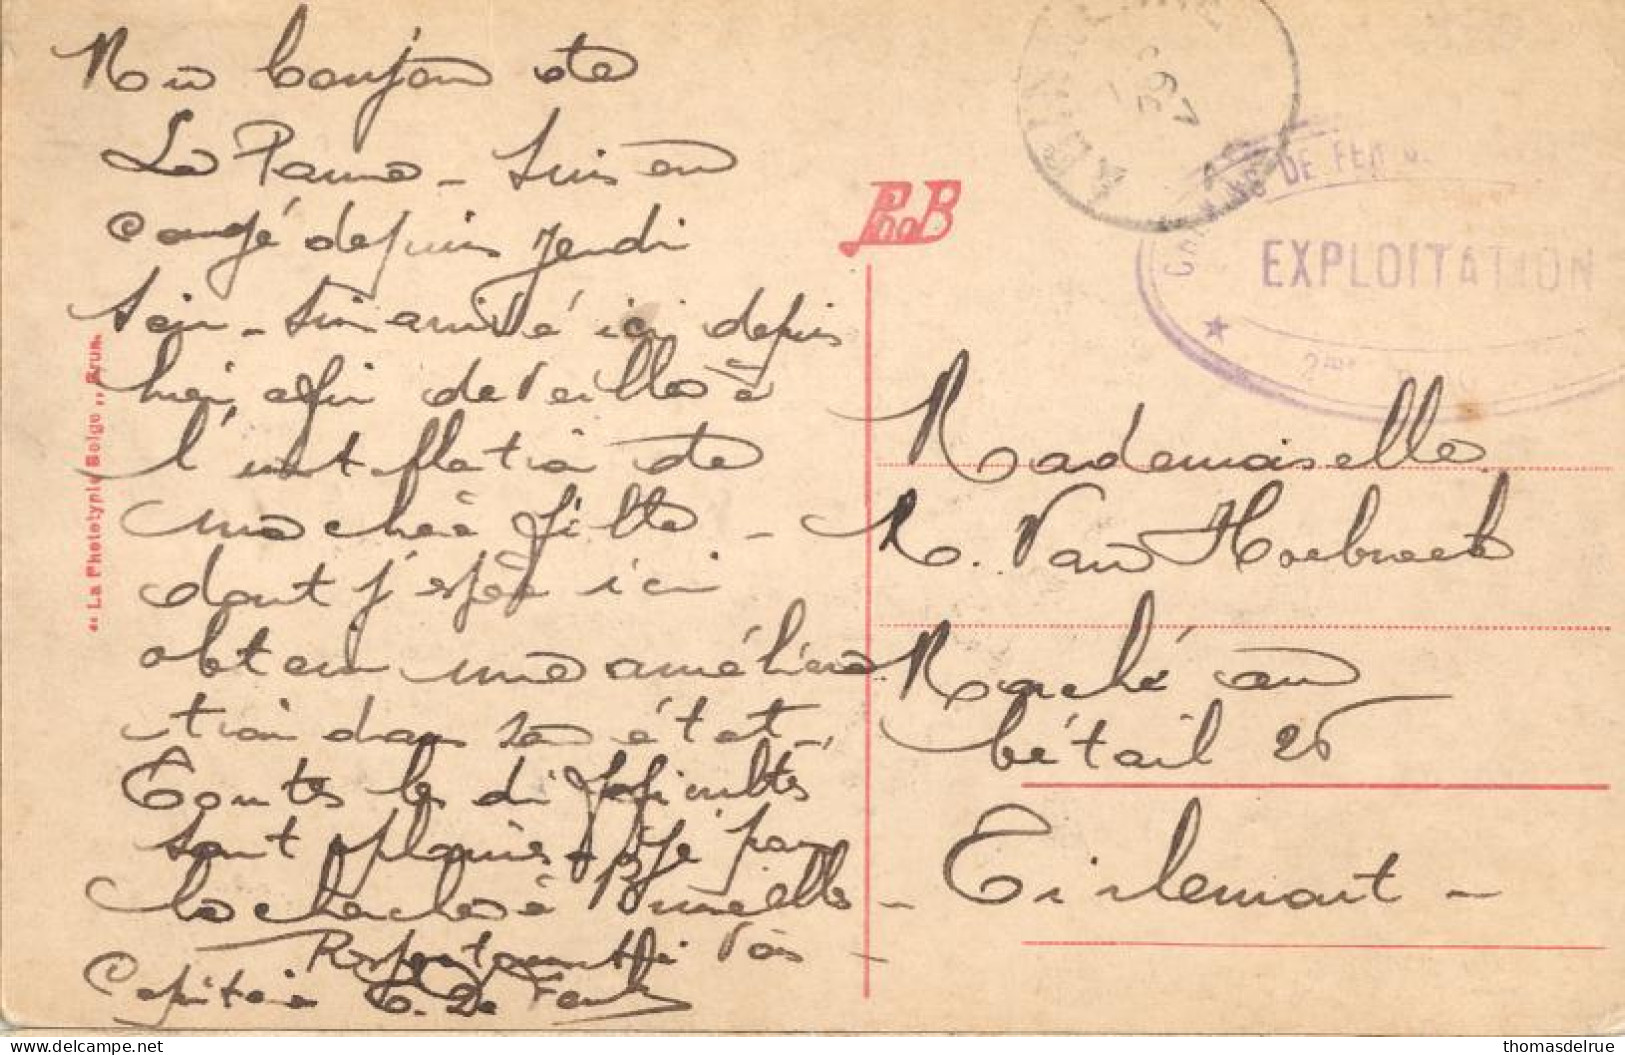 Mon bonjour de
La Panne - Suis en
congé depuis jeudi
soir - suis arrivé ici depuis
hier, afin de veiller à
l'installation de
ma chère fille -
dont j'espère ici
obtenir une améliora
tion dans son état -
Toutes les difficultés
sont aplanies - je
la chercher à Bruxelles -
Respectueusement à Vous -
Capitaine C. De
PhoB
de La Phototypie Belge
EXPLOITATION
DE FER
2me
29
7
Mademoiselle
M. Van Hoebroeck
Marché au
bétail 26
Tirlemont -
thomasdelrue